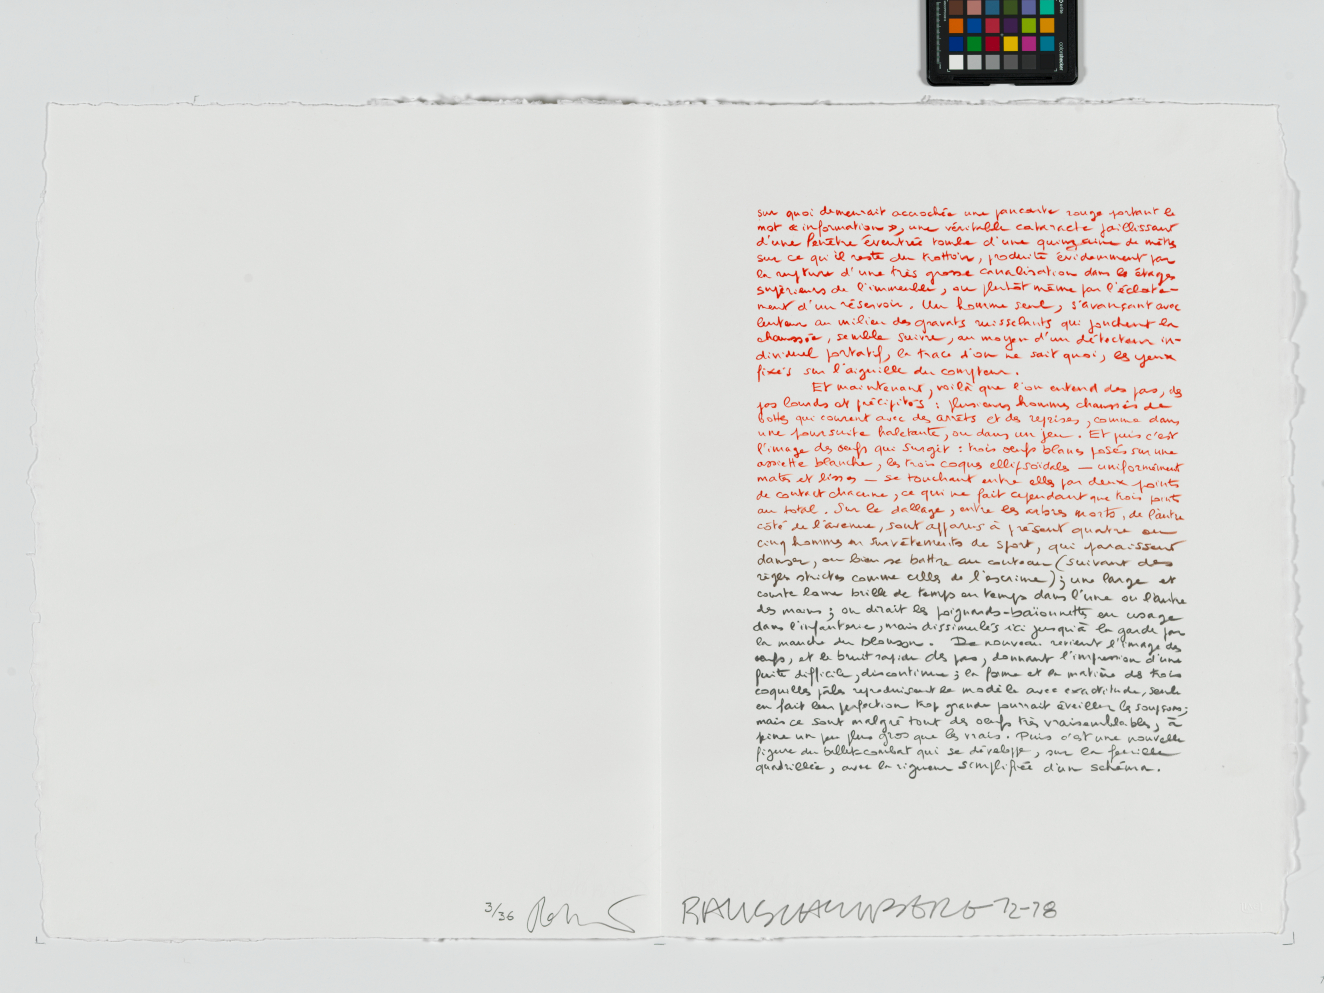 sur quoi demeurait accrochée une pancarte rouge portant le
mot « information », une véritable cataracte jaillissant
d'une fenêtre éventrée tombe d'une quinzaine de mètres
sur ce qu'il reste du trottoir, produite évidemment par
la rupture d'une très grosse canalisation dans les étages
supérieurs de l'immeuble, ou plutôt même par l'éclate-
ment d'un réservoir. Un homme seul, s'avançant avec
lenteur au milieu des gravats ruisselants qui jonchent la
chaussée, semble suivre, au moyen d'un détecteur in-
dividuel portatif, la trace d'on ne sait quoi, les yeux
fixés sur l'aiguille du compteur.
Et maintenant, voilà que l'on entend des pas, des
pas lourds et précipités : plusieurs hommes chaussés de
bottes qui courent avec des arrêts et des reprises, comme dans
une poursuite haletante, ou dans un jeu. Et puis c'est
l'image des œufs qui surgit : trois œufs blancs posés sur une
assiette blanche, les trois coques ellipsoïdales — uniformément
mates et lisses — se touchant entre elles par deux points
de contact chacune, ce qui ne fait cependant que trois points
au total. Sur le dallage, entre les arbres morts, de l'autre
côté de l'avenue, sont apparus à présent quatre ou
cinq hommes en survêtements de sport, qui paraissent
danser, ou bien se battre au couteau (suivant des
règles strictes comme celles de l'escrime) ; une large et
courte lame brille de temps en temps dans l'une ou l'autre
des mains ; on dirait les poignards-baïonnettes en usage
dans l'infanterie, mais dissimulés ici jusqu'à la garde par
la manche du blouson. De nouveau revient l'image des
œufs, et le bruit rapide des pas, donnant l'impression d'une
fuite difficile, discontinue ; la forme et la matière des trois
coquilles pâles reproduisent le modèle avec exactitude, seule
en fait leur perfection trop grande pourrait éveiller les soupçons ;
mais ce sont malgré tout des œufs très vraisemblables, à
peine un peu plus gros que les vrais. Puis c'est une nouvelle
figure du ballet-combat qui se développe, sur la feuille
quadrillée, avec la rigueur simplifiée d'un schéma.
3/36 RAUSCHENBERG 72-78